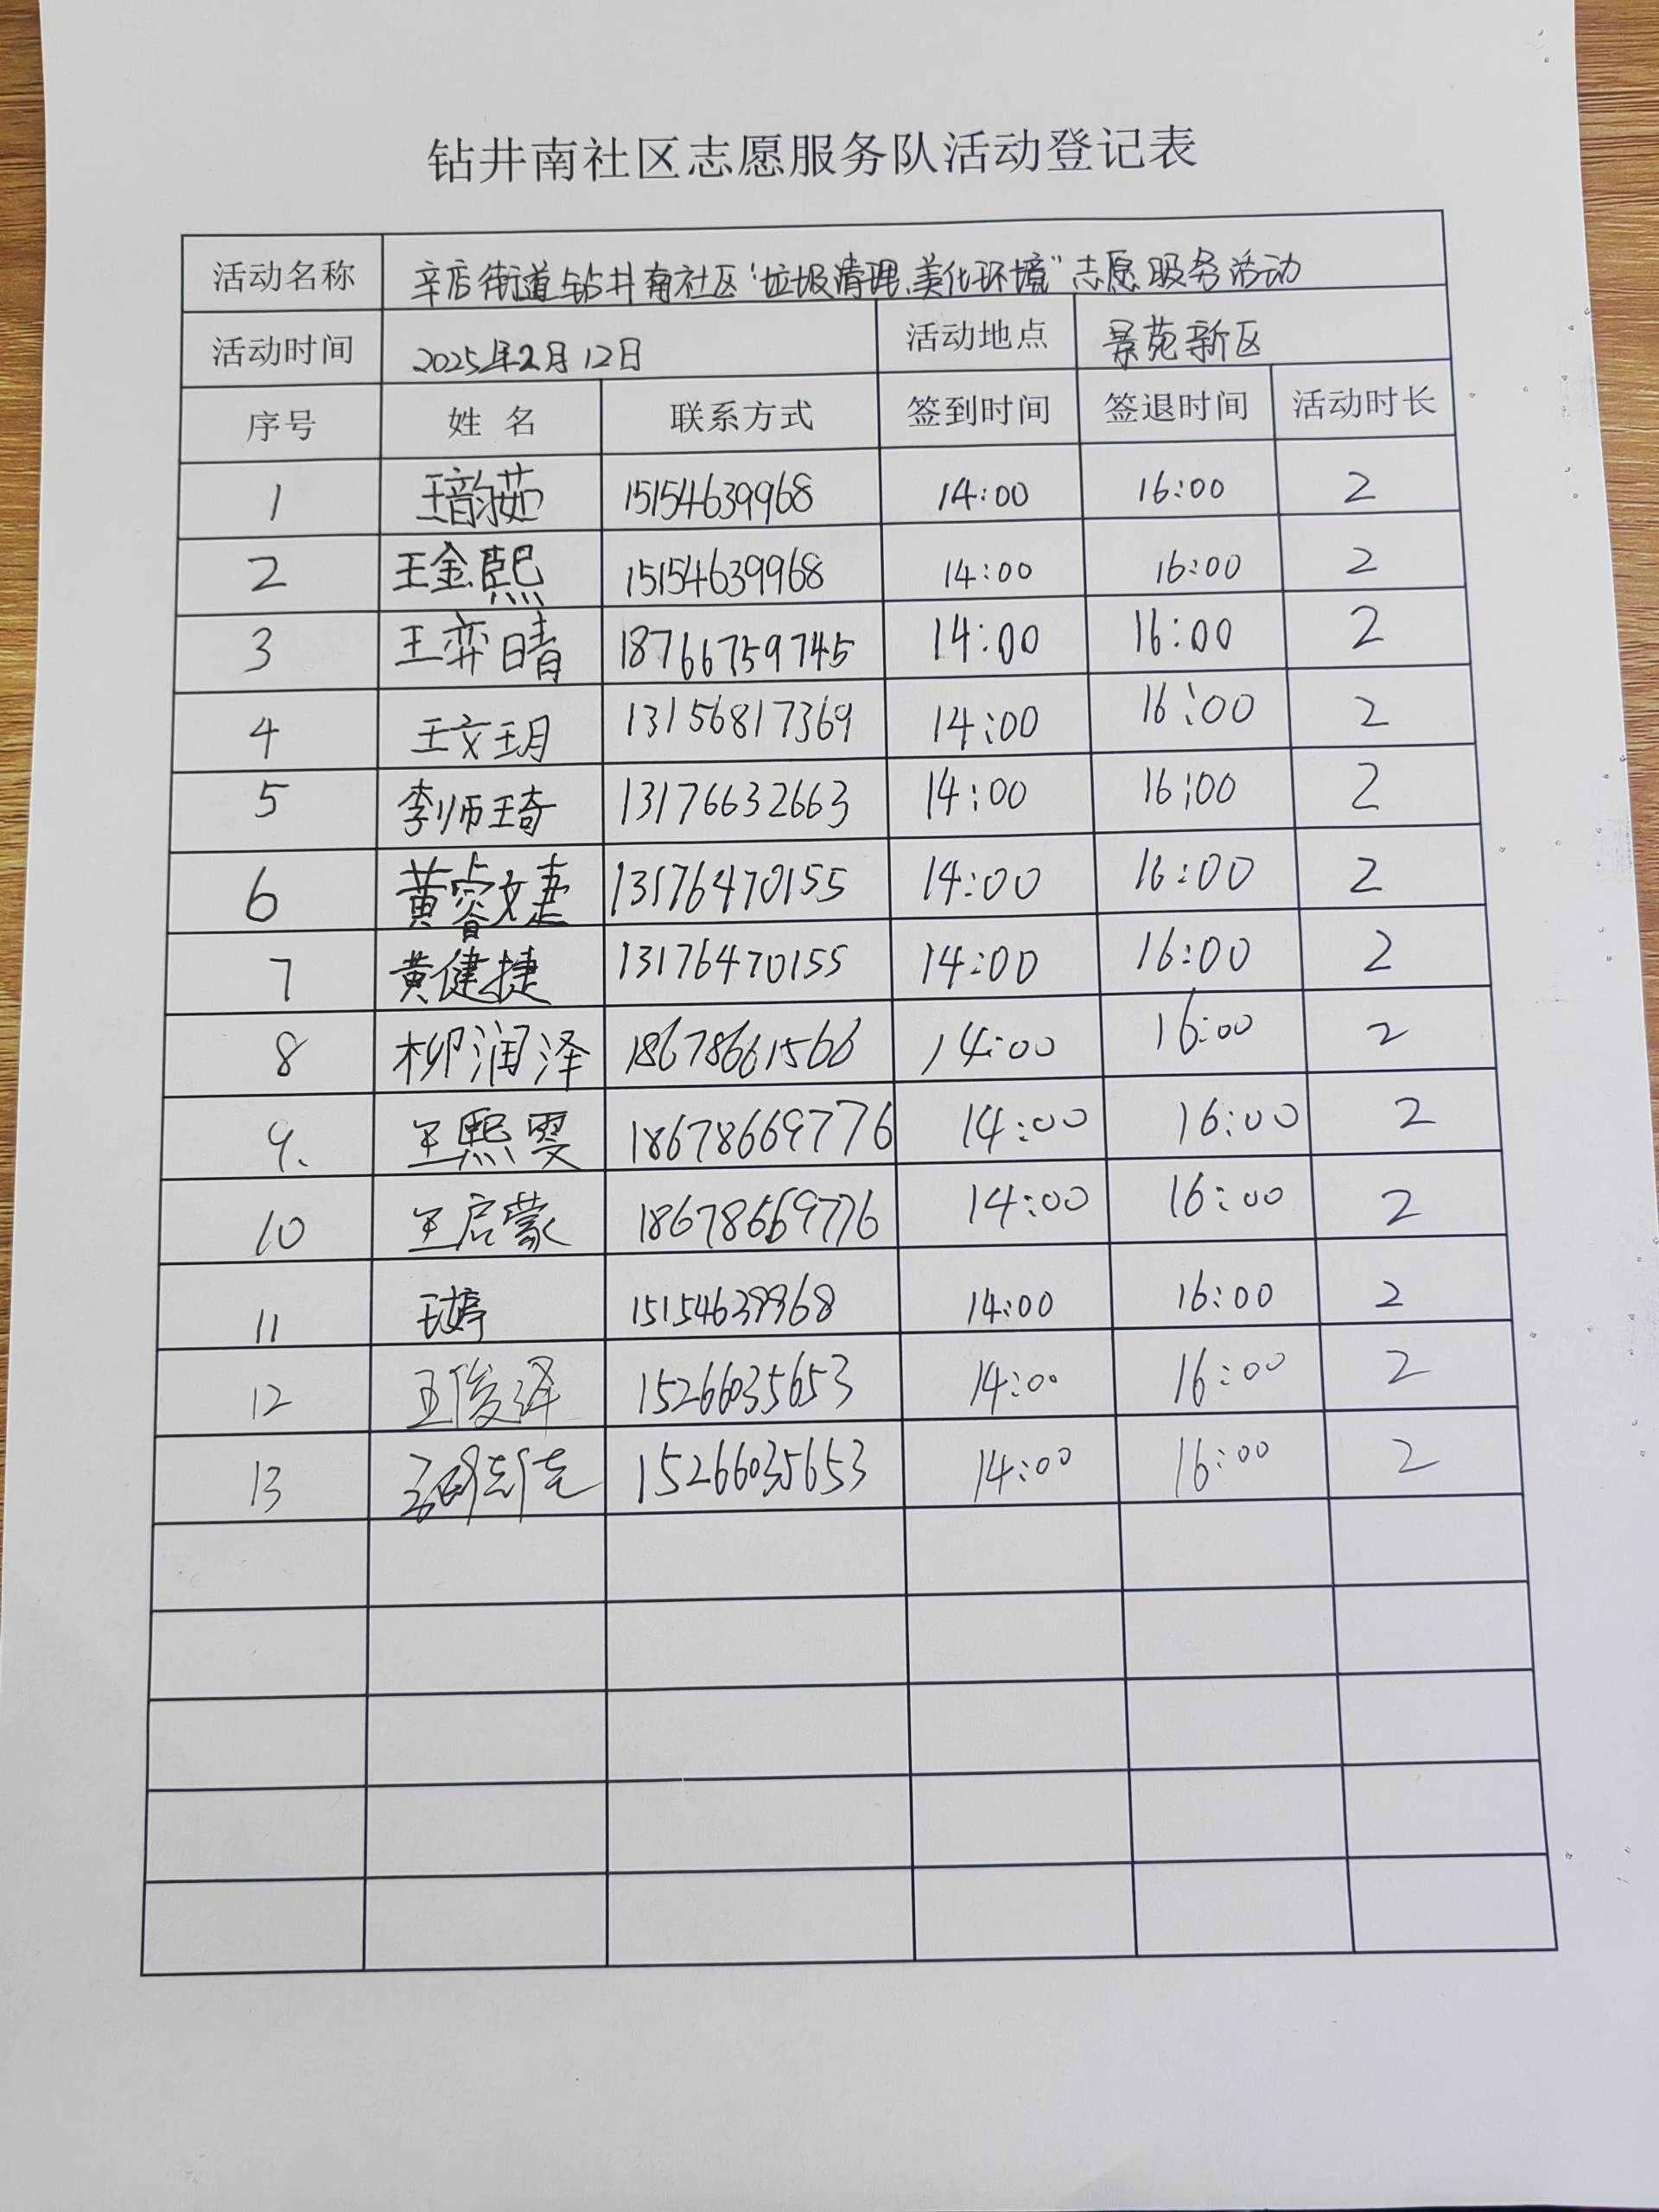 钻井南社区志愿服务队活动登记表
活动名称 辛店街道钻井南社区“垃圾清理、美化环境”志愿服务活动
活动时间 2025年2月12日 活动地点 景苑新区
序号 姓名 联系方式 签到时间 签退时间 活动时长
1 王韵茹 15154639968 14:00 16:00 2
2 王金熙 15154639968 14:00 16:00 2
3 王弈晴 18766759745 14:00 16:00 2
4 王文玥 13156817369 14:00 16:00 2
5 李师琦 13176632663 14:00 16:00 2
6 黄睿文 13176470155 14:00 16:00 2
7 黄健捷 13176470155 14:00 16:00 2
8 柳润泽 18678661566 14:00 16:00 2
9、 王熙雯 18678669776 14:00 16:00 2
10 王启蒙 18678669776 14:00 16:00 2
11 王婷 15154639968 14:00 16:00 2
12 王俊泽 15266035653 14:00 16:00 2
13 15266035653 14:00 16:00 2